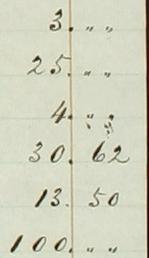 3. " "
25. " "
4. " "
30. 62
13. 50
100. " "